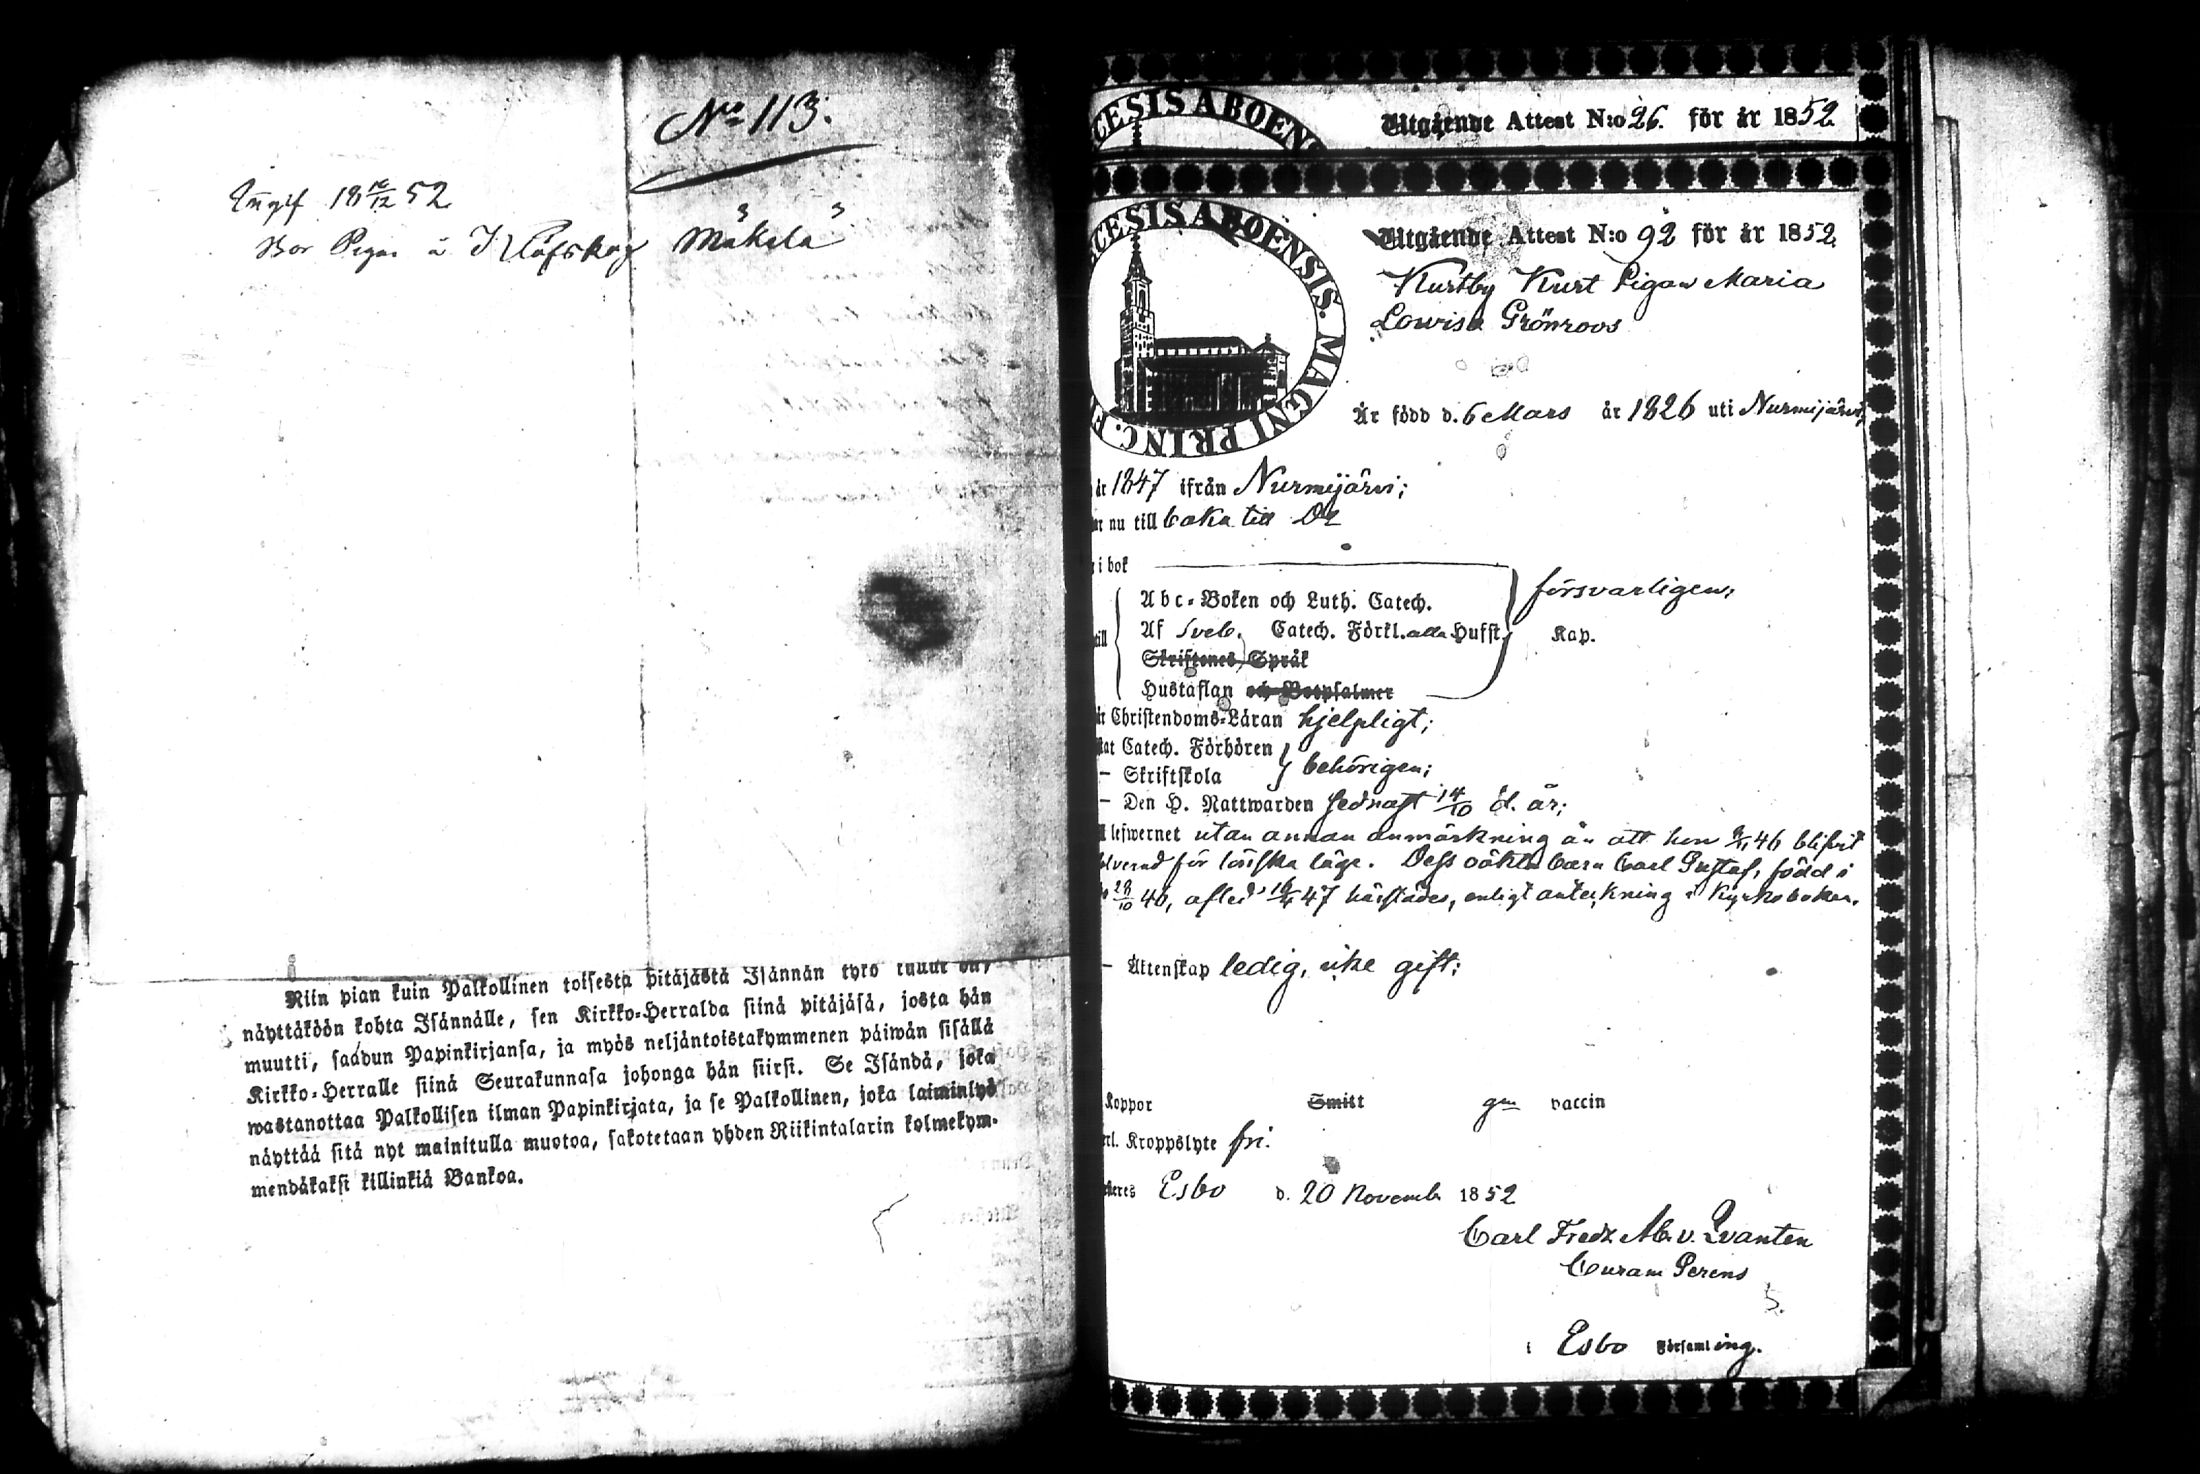 No 113.
Ingif 18 12 52
Bor Pigan å Klöfskog Mäkelä
Niin pian kuin Palkollinen toisesta pitäjästä Isännän tykö tullut on,
näyttäköön kohta Isännälle, sen Kirkko-Herralda siinä pitäjäsä, josta hän
muutti, saadun Papinkirjansa, ja myös neljäntoistakymmenen päiwän sisällä
Kirkko-Herralle siinä Seurakunnasa johonga hän siirsi. Se Isändä, joka
wastanottaa Palkollisen ilman Papinkirjata, ja se Palkollinen, joka laiminlyö
näyttää sitä nyt mainitulla muotoa, sakotetaan yhden Riikintalarin kolmekym-
mendäkaksi killinkiä Bankoa.
CESIS ABOENS
Utgående Attest N:o 26. för år 1852.
CESIS ABOENSIS. MAGNI PRINC. F
Utgående Attest N:o 92 för år 1852.
Kurtby Kurt Pigan Maria
Lovisa Grönroos
Är född d. 6 Mars år 1826 uti Nurmijärvi,
år 1847 ifrån Nurmijärvi;
nu till baka till
i bok
Abc-Boken och Luth. Catech. försvarligen,
till Af Sveb. Catech. Förkl. alla Hufst. Kap.
Skriftenes Språk
Hustaflan och Botpsalmer
Christendoms-Läran hjelpligt;
Catech. Förhören
— Skriftskola behörigen;
— Den H. Nattwarden sednast 14/10 d. år;
lefwernet utan annan anmärkning än att hon 46 blifvit
för lönska läge. Dess oäkta barn Carl Gustaf, född i
28/10 46, afled 47 härstädes, enligt anteckning i Kyrkoboken.
— Äktenskap ledig, icke gift;
Koppor Smitt gm vaccin
Kroppslyte fri.
Esbo d. 20 Novemb. 1852
Carl Fredr. Ab. v. Qvanten
Curam Gerens
i Esbo Församling.